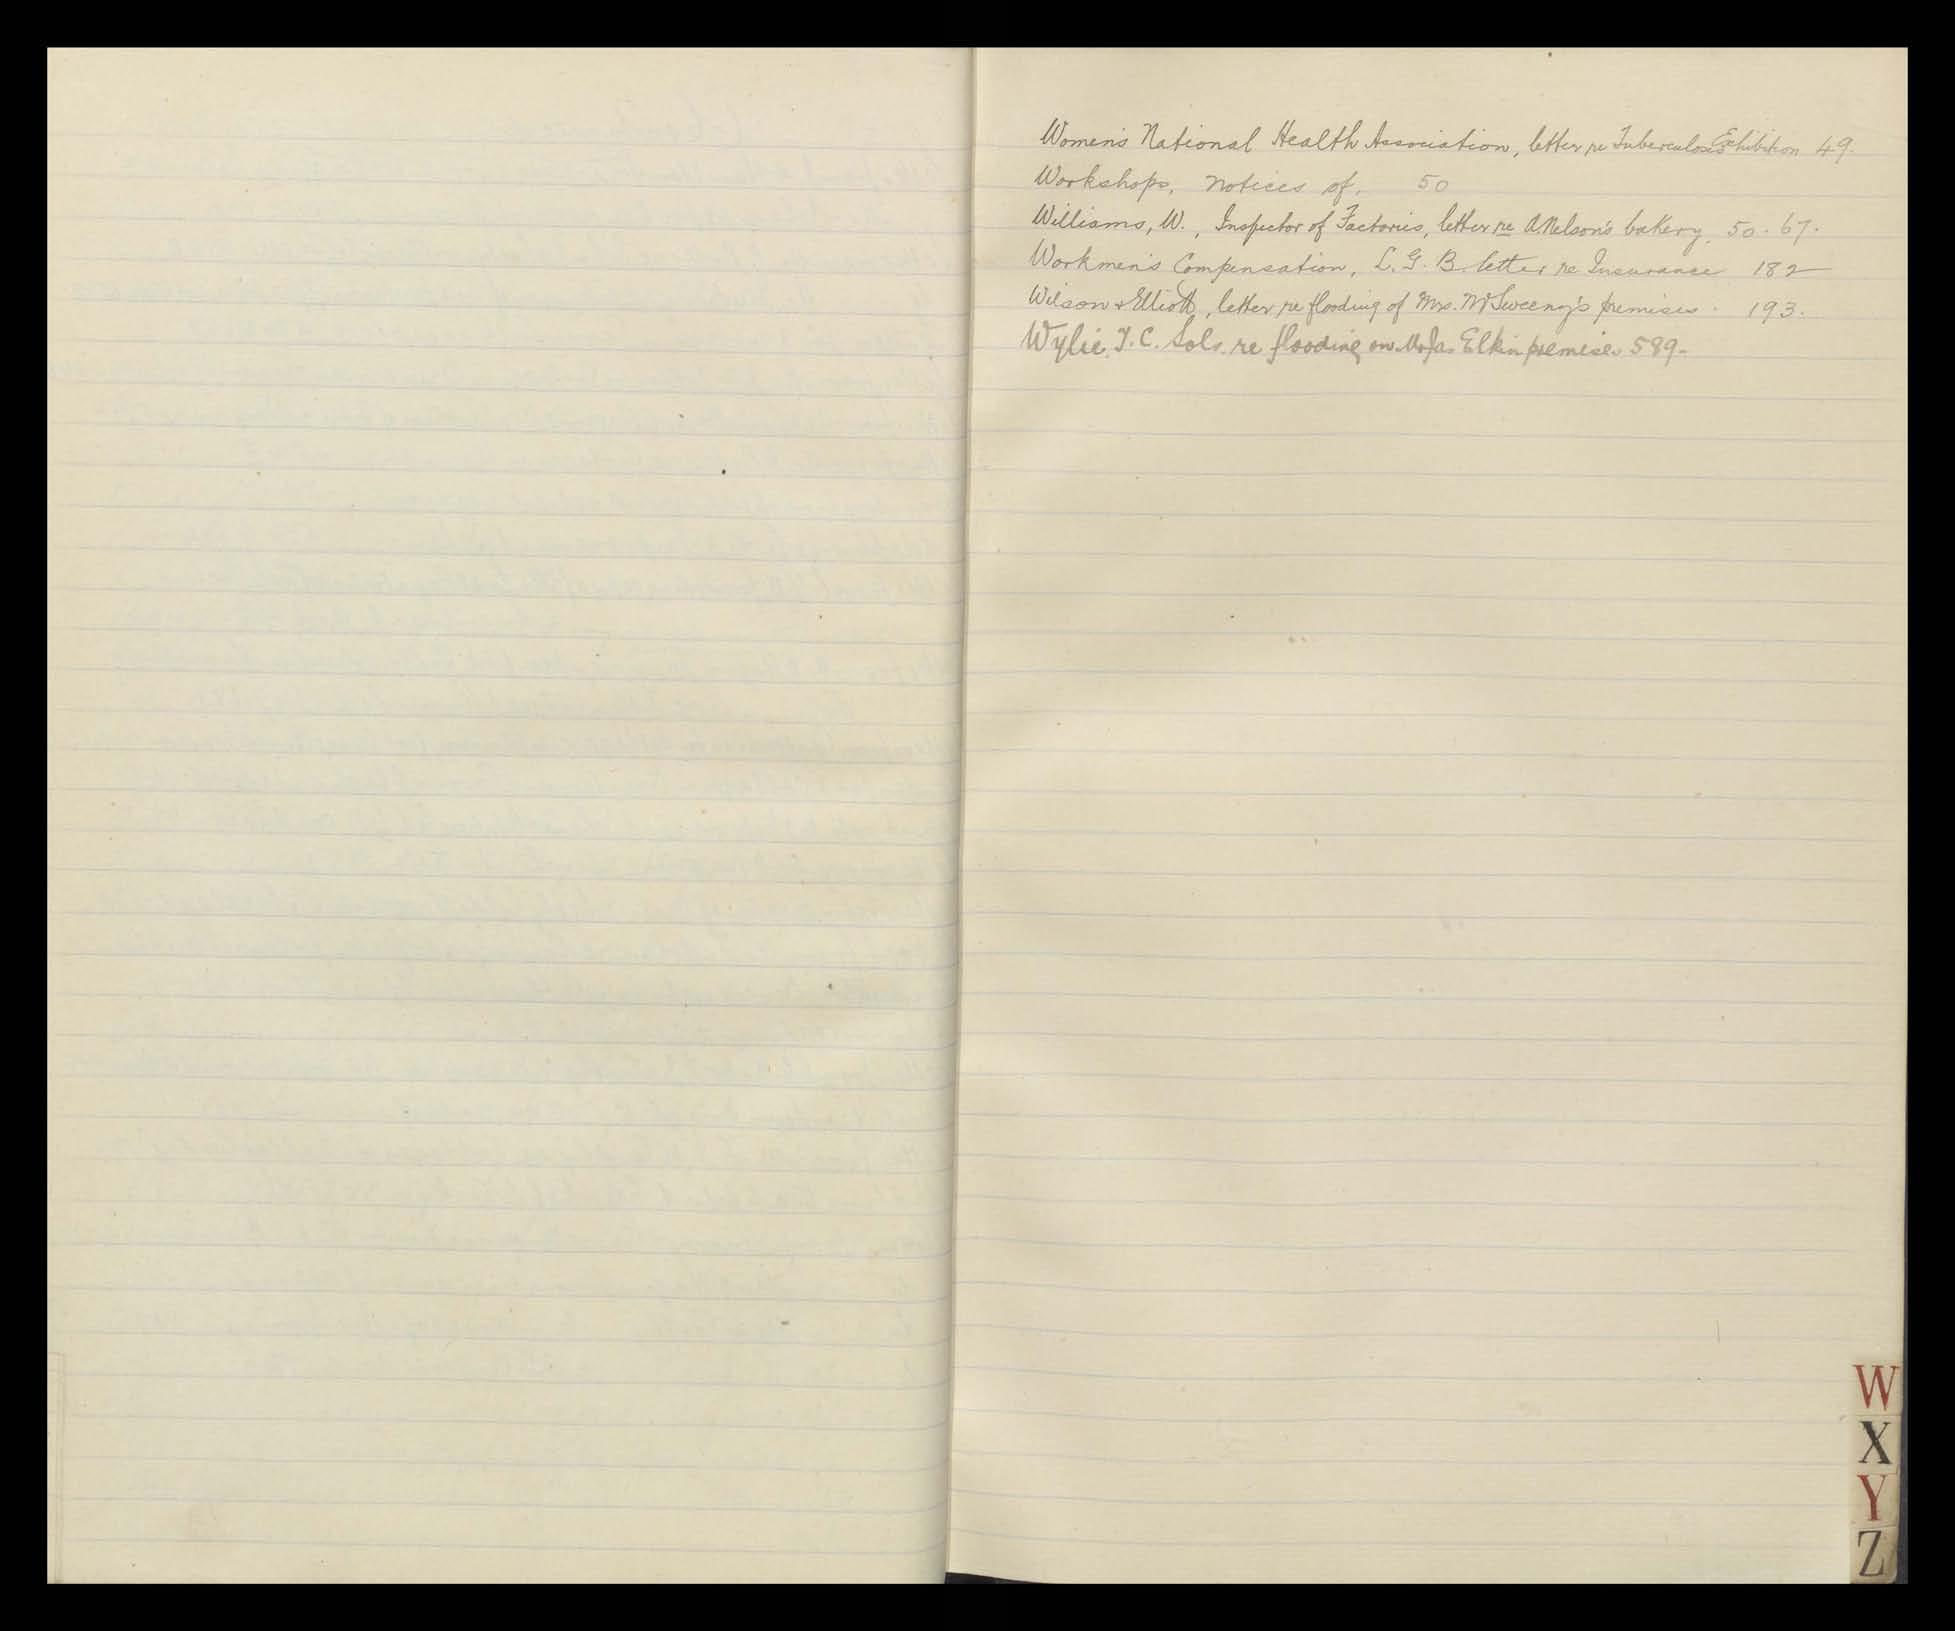 Women's National Health Association, letter re Tuberculosis Exhibition 49.
Workshops, notices of. 50
Williams, W., Inspector of Factories, letter re A Nelson's bakery. 50. 67.
Workmen's Compensation, L. G. B. letter re Insurance 182
Wilson & Elliott, letter re flooding of Mrs. McSweeny's premises. 193.
Wylie T. C. Solr. re flooding on Mr Jas Elkin premises 589.
W
X
Y
Z